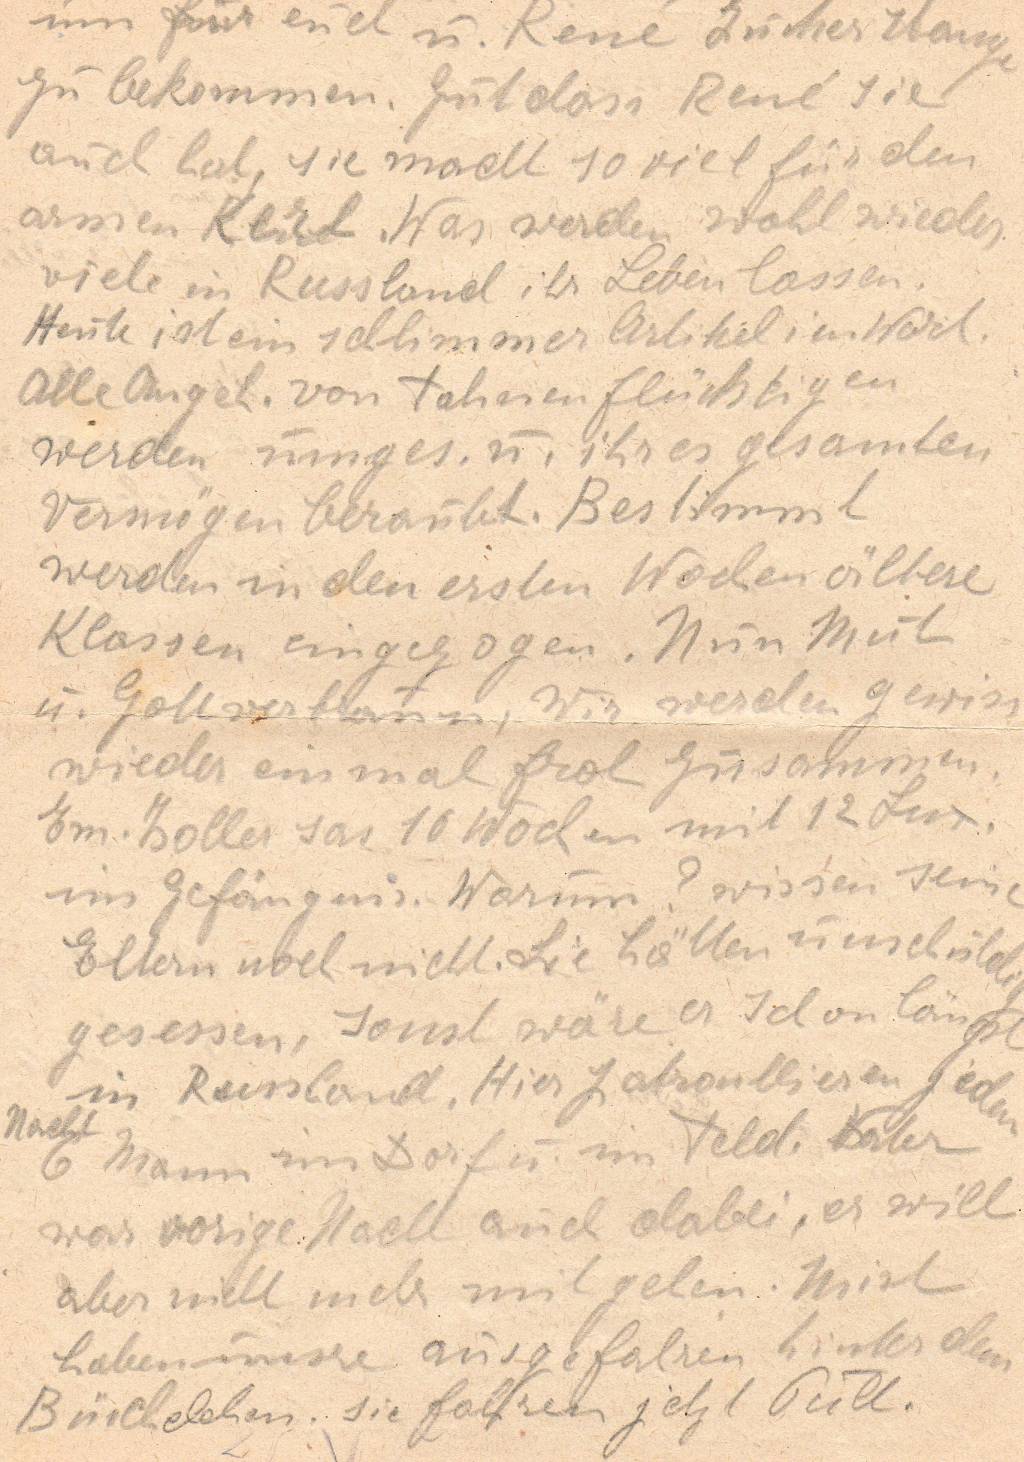 um für euch u. René Zucker
zu bekommen. Gut dass René sie
auch hat, sie macht so viel für den
armen Kerl. Was werden wohl wieder
viele in Russland ihr Leben lassen.
Heute ist ein schlimmer Artikel im Wort.
Alle Angeh. von Fahnenflüchtigen
werden umges. u. ihres gesamten
Vermögen beraubt. Bestimmt
werden in den ersten Wochen ältere
Klassen eingezogen. Nun Mut
u. Gottvertraun, wir werden gewiss
wieder einmal froh zusammen.
Em. Zoller sas 10 Wochen mit 12 Lux.
im Gefängnis. Warum? wissen seine
Eltern noch nicht. Sie hätten unschuldig
gesessen, sonst wäre er schon längst
in Russland. Hier patroullieren jeden
Nacht
6 Mann im Dorf u. im Feld. Vater
war vorige Nacht auch dabei, er will
aber nicht mehr mit gehen. Mist
haben unsre ausgefahren hinter dem
sie fahren jetzt